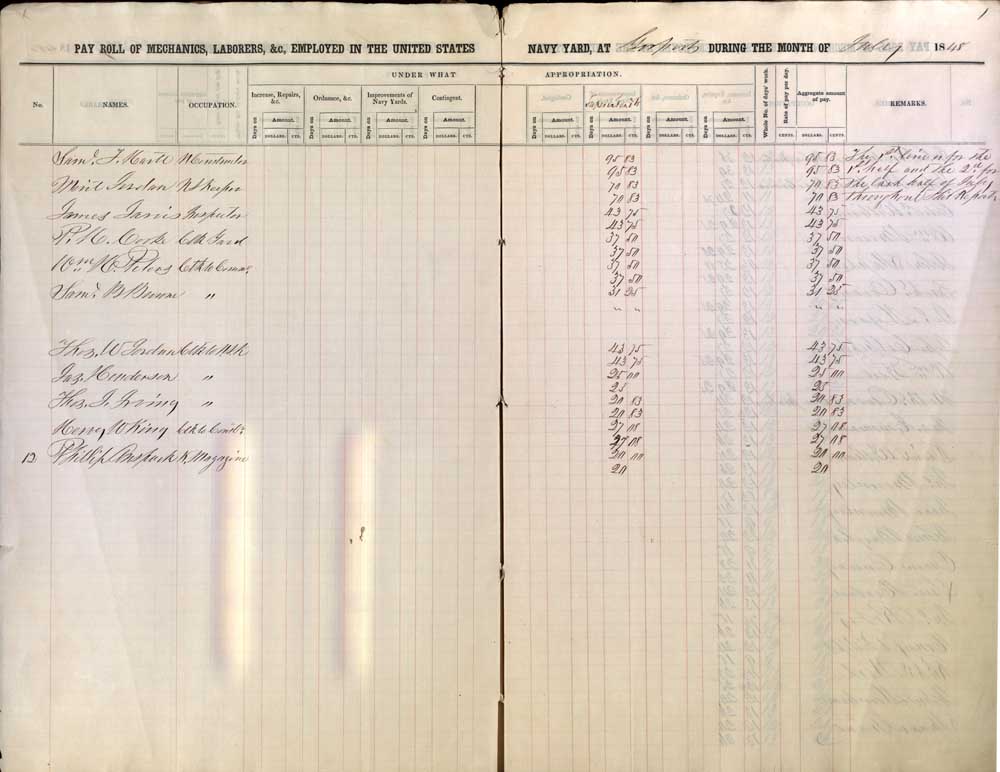 1
PAY ROLL OF MECHANICS, LABORERS, &c, EMPLOYED IN THE UNITED STATES NAVY YARD, AT Gosport DURING THE MONTH OF July 1848
UNDER WHAT APPROPRIATION.
No. NAMES. OCCUPATION. Increase, Repairs, &c. Ordnance, &c. Improvements of Navy Yards. Contingent. Whole No. of days' work. Rate of pay per day. Aggregate amount of pay. REMARKS.
Days on Amount. Days on Amount. Days on Amount. Days on Amount. Days on Amount. Days on Amount. Days on Amount. Days on Amount.
DOLLARS. CTS. DOLLARS. CTS. DOLLARS. CTS. DOLLARS. CTS. DOLLARS. CTS. DOLLARS. CTS. DOLLARS. CTS. DOLLARS. CTS. CENTS. DOLLARS. CTS.
Saml. T. Hartt N Constructor 95 83 95 83 The 1st line is for the
95 83 95 83 1st half and the 2nd for
Jordan N S Keeper 70 83 70 83 the last half of July
70 83 70 83 throughout this Report
James Jarvis Inspector 43 75 43 75
43 75 43 75
P. H. Cooke Clk Yard 37 50 37 50
37 50 37 50
Wm H. Peters Clk to Comm. 37 50 37 50
37 50 37 50
Saml. B Browne " 31 25 31 25
" " " "
Thos. W Jordan Clk to N S K 43 75 43 75
43 75 43 75
Jas. Henderson " 25 00 25 00
25 25
Thos. J. Irving " 20 83 20 83
20 83 20 83
Henry W King Clk to Constr. 27 08 27 08
27 08 27 08
12 Phillip Anspack K. Magazine 20 00 20 00
20 20